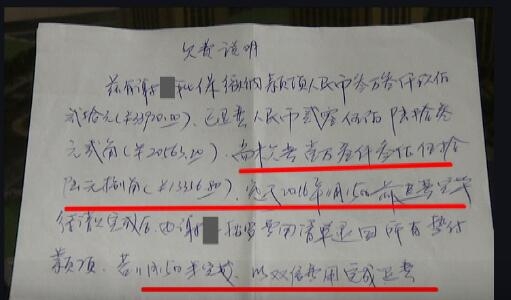 欠费说明
兹有谢 社保缴纳款项人民币叁万叁仟玖佰
贰拾元(¥33920.00).已退费人民币贰 伍佰陆拾叁
元贰角(¥20563.20).尚未欠费壹万叁仟叁佰伍拾
陆元捌角(¥13356.80).定于2016年11月15日前退费完毕
完成后.由谢 费用清单退回所有垫付
款项.若11月15日未完成.以双倍费用完成退费